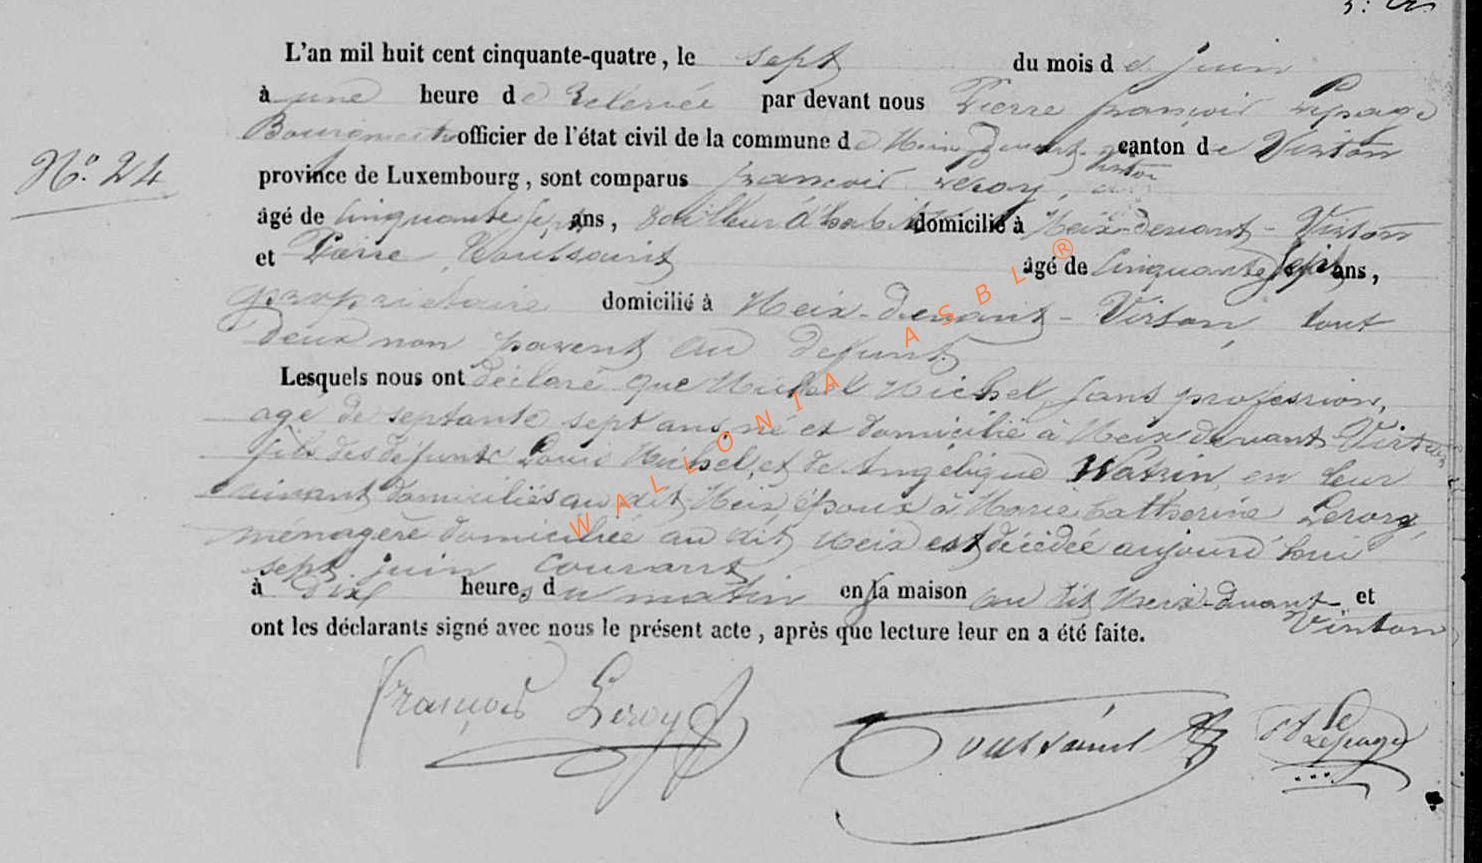 L'an mil huit cent cinquante-quatre, le sept du mois de juin
à une heure de relevée par devant nous Pierre françois Lepage
Bourgmestre officier de l'état civil de la commune de Meix devant Virton canton de Virton
province de Luxembourg, sont comparus françois Leroy,
âgé de cinquante sept ans, tailleur d'habit domicilié à Meix-devant-Virton
et Pierre Toussaint âgé de cinquante sept ans,
propriétaire domicilié à Meix-devant-Virton, tout
deux non parent au defunt.
Lesquels nous ont déclaré que Michel Michel, sans profession,
age de septante sept ans, né et domicilié à Meix devant Virton
fils des défunts Louis Michel, et de Angélique Watrin, en leur
vivant domiciliés au dit Meix, époux à Marie Catherine Leroy,
ménagère domiciliée au dit Meix est décédée aujourd'hui
sept juin courant
à dix heures du matin en sa maison au dit Meix-devant Virton et
ont les déclarants signé avec nous le présent acte, après que lecture leur en a été faite.
N° 24
François Leroy
Toussaint
Lepage
WALLONIA ASBL ®